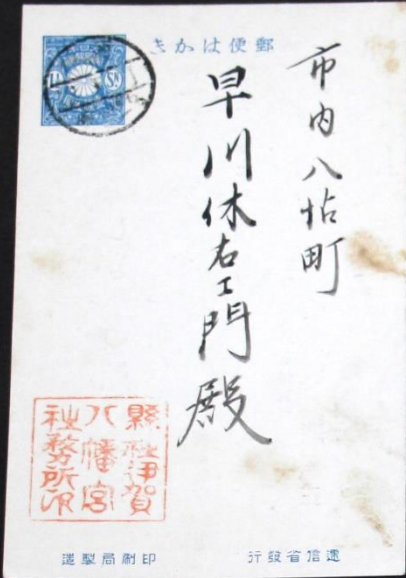 郵便はかき
市内八帖町
早川休右エ門殿
縣社伊賀
八幡宮
社務所印
逓信省發行
印刷局製造